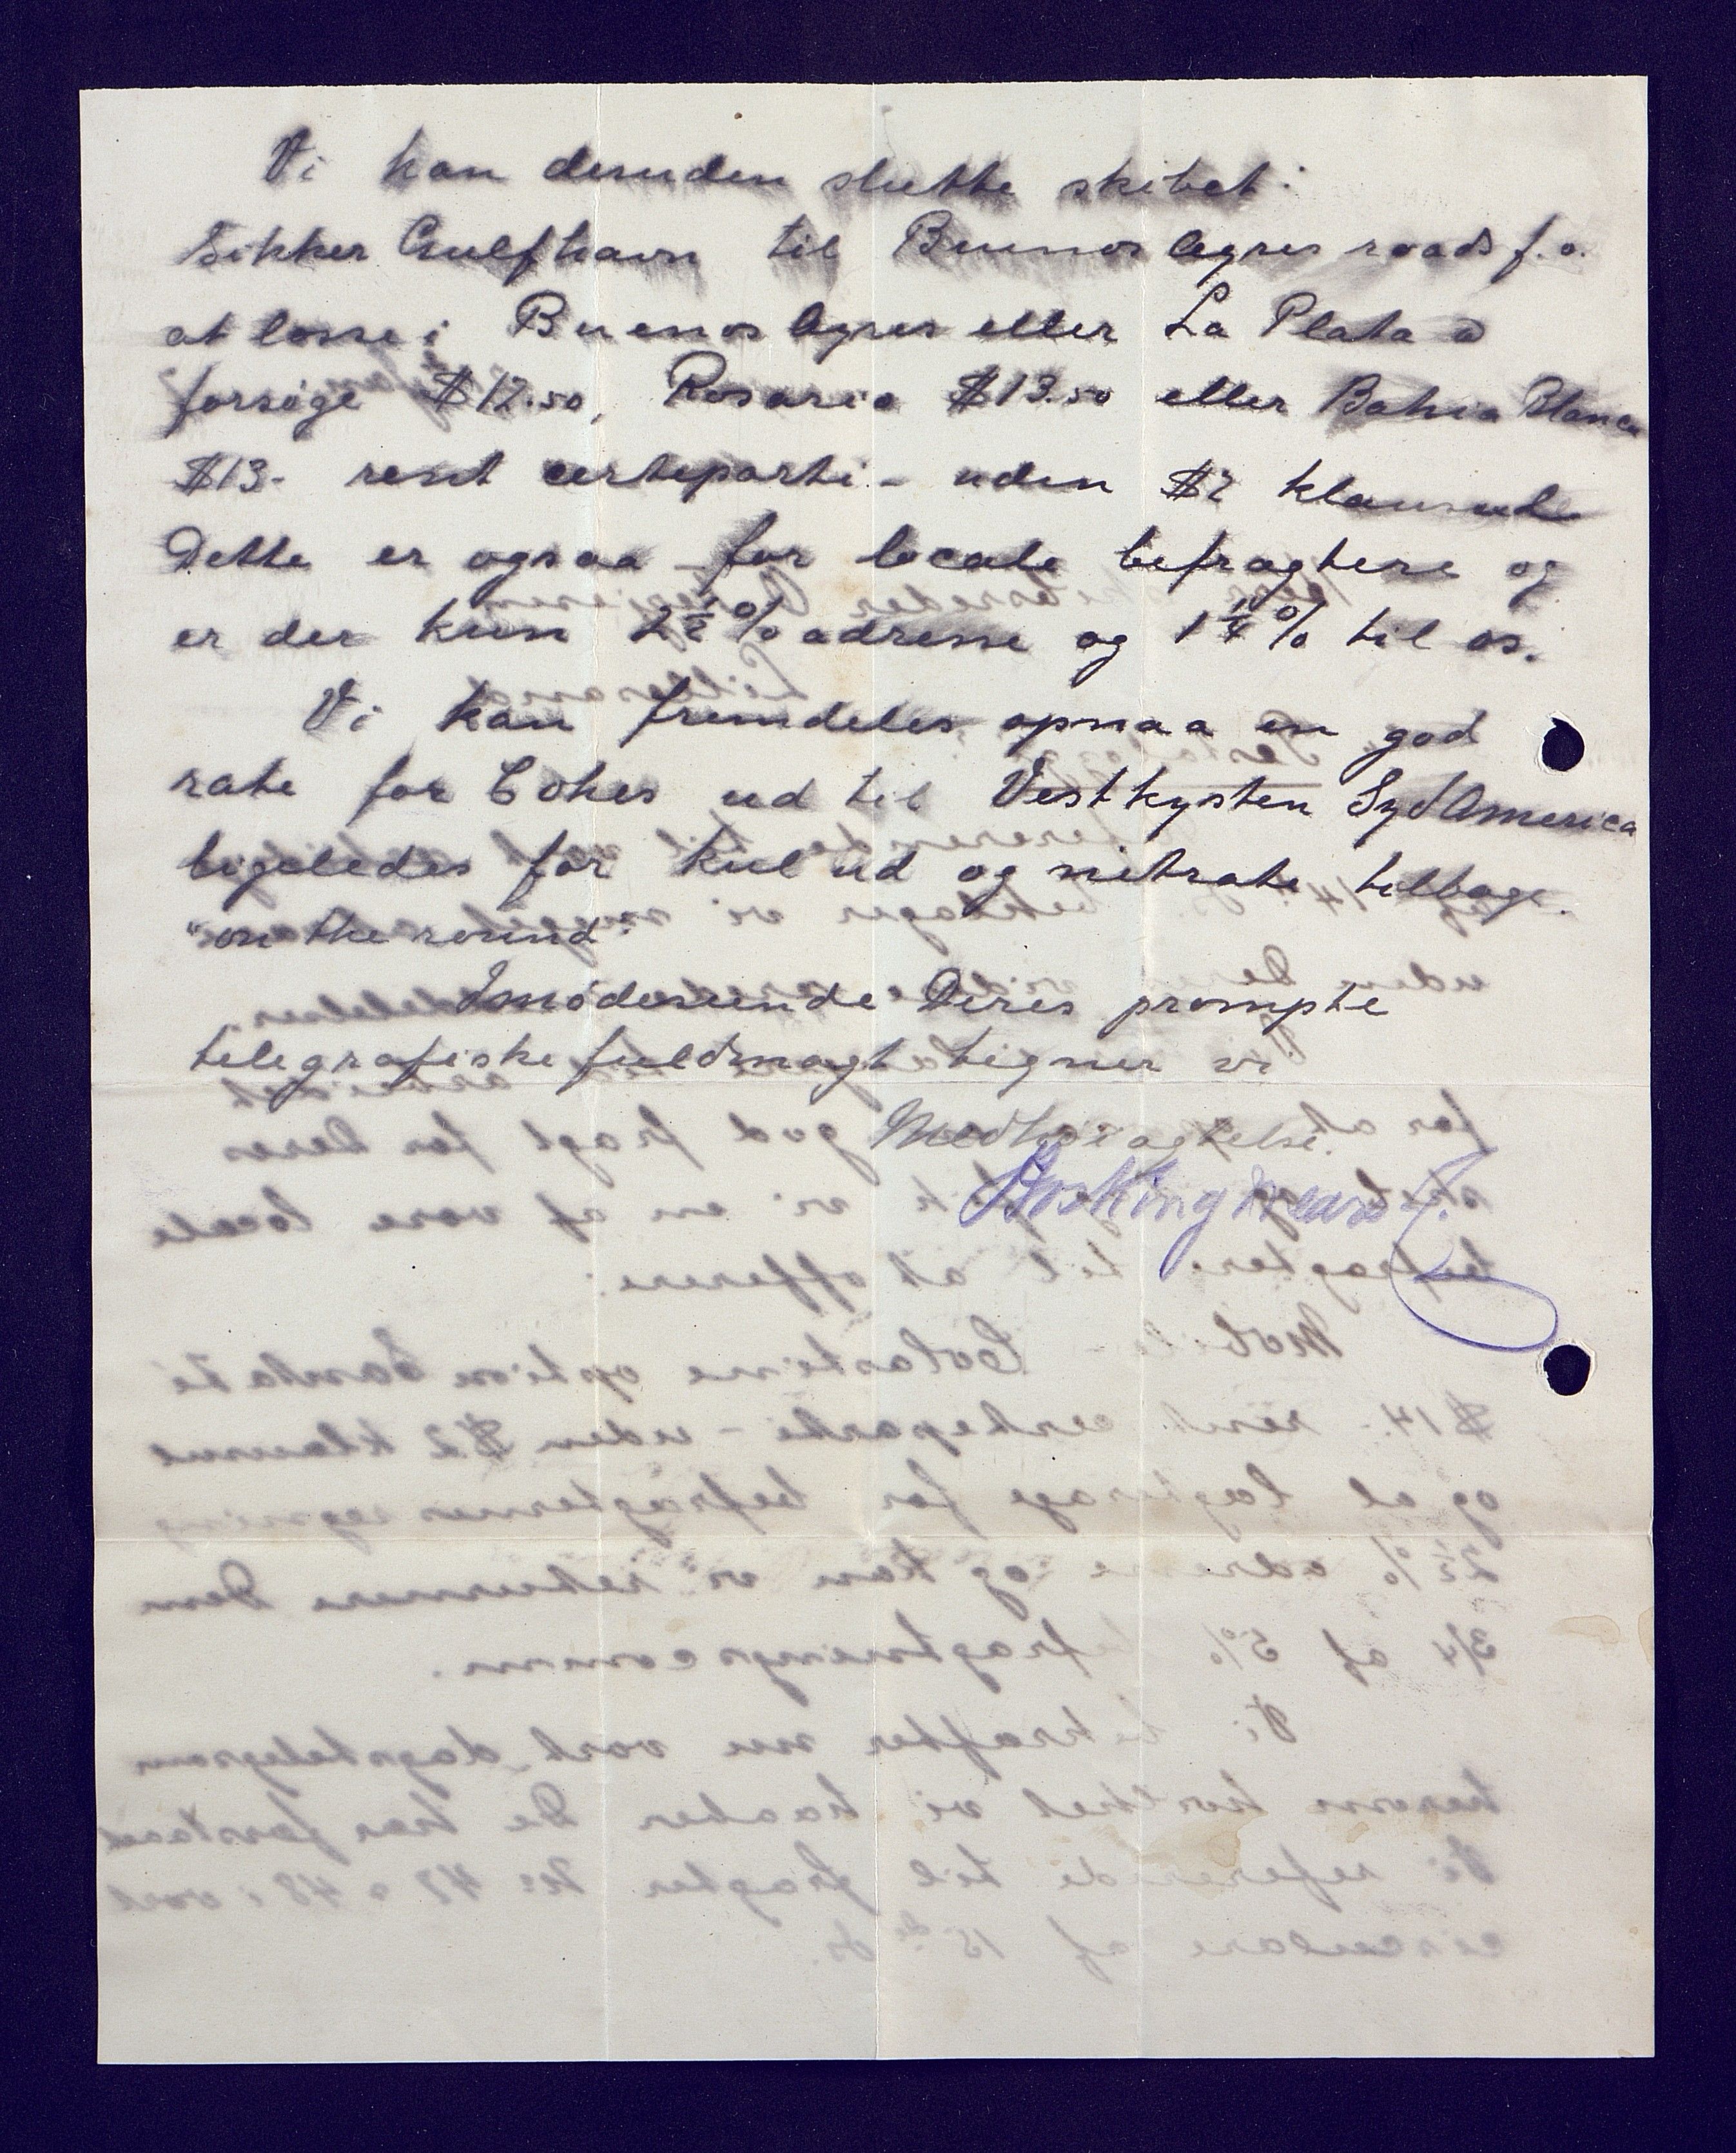 Vi kan desuden slutte skibet:
sikker Gulfhavn til Buenos Ayres roads f. o.
at losse i Buenos Ayres eller La Plata a
forsøge $12.50, Rosario $13.50 eller Bahia Blanca
$13- rent certeparti - uden $2 klausul
Dette er ogsaa for locale befragtere og
er der kun 2½% adresse og 1¼% til os.
Vi kan fremdeles opnaa en god
rate for Cokes ud til Vestkysten Syd America
ligeledes for kul ud og nitrate tilbage.
"on the round".
Imødeseende Deres prompte
telegrafiske fuldmagt tegner vi
Med høiagtelse.